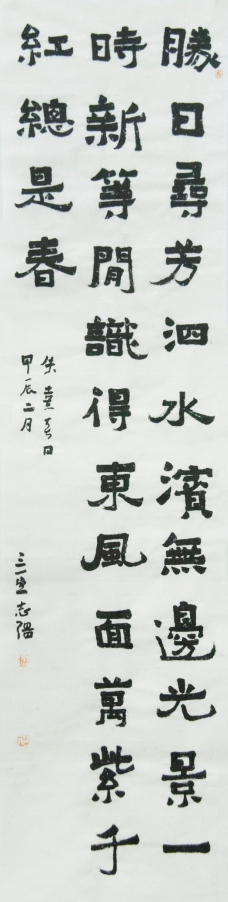 勝日尋芳泗水濱無邊光景一
時新等閒識得東風面萬紫千
紅總是春
朱熹春日
甲辰二月